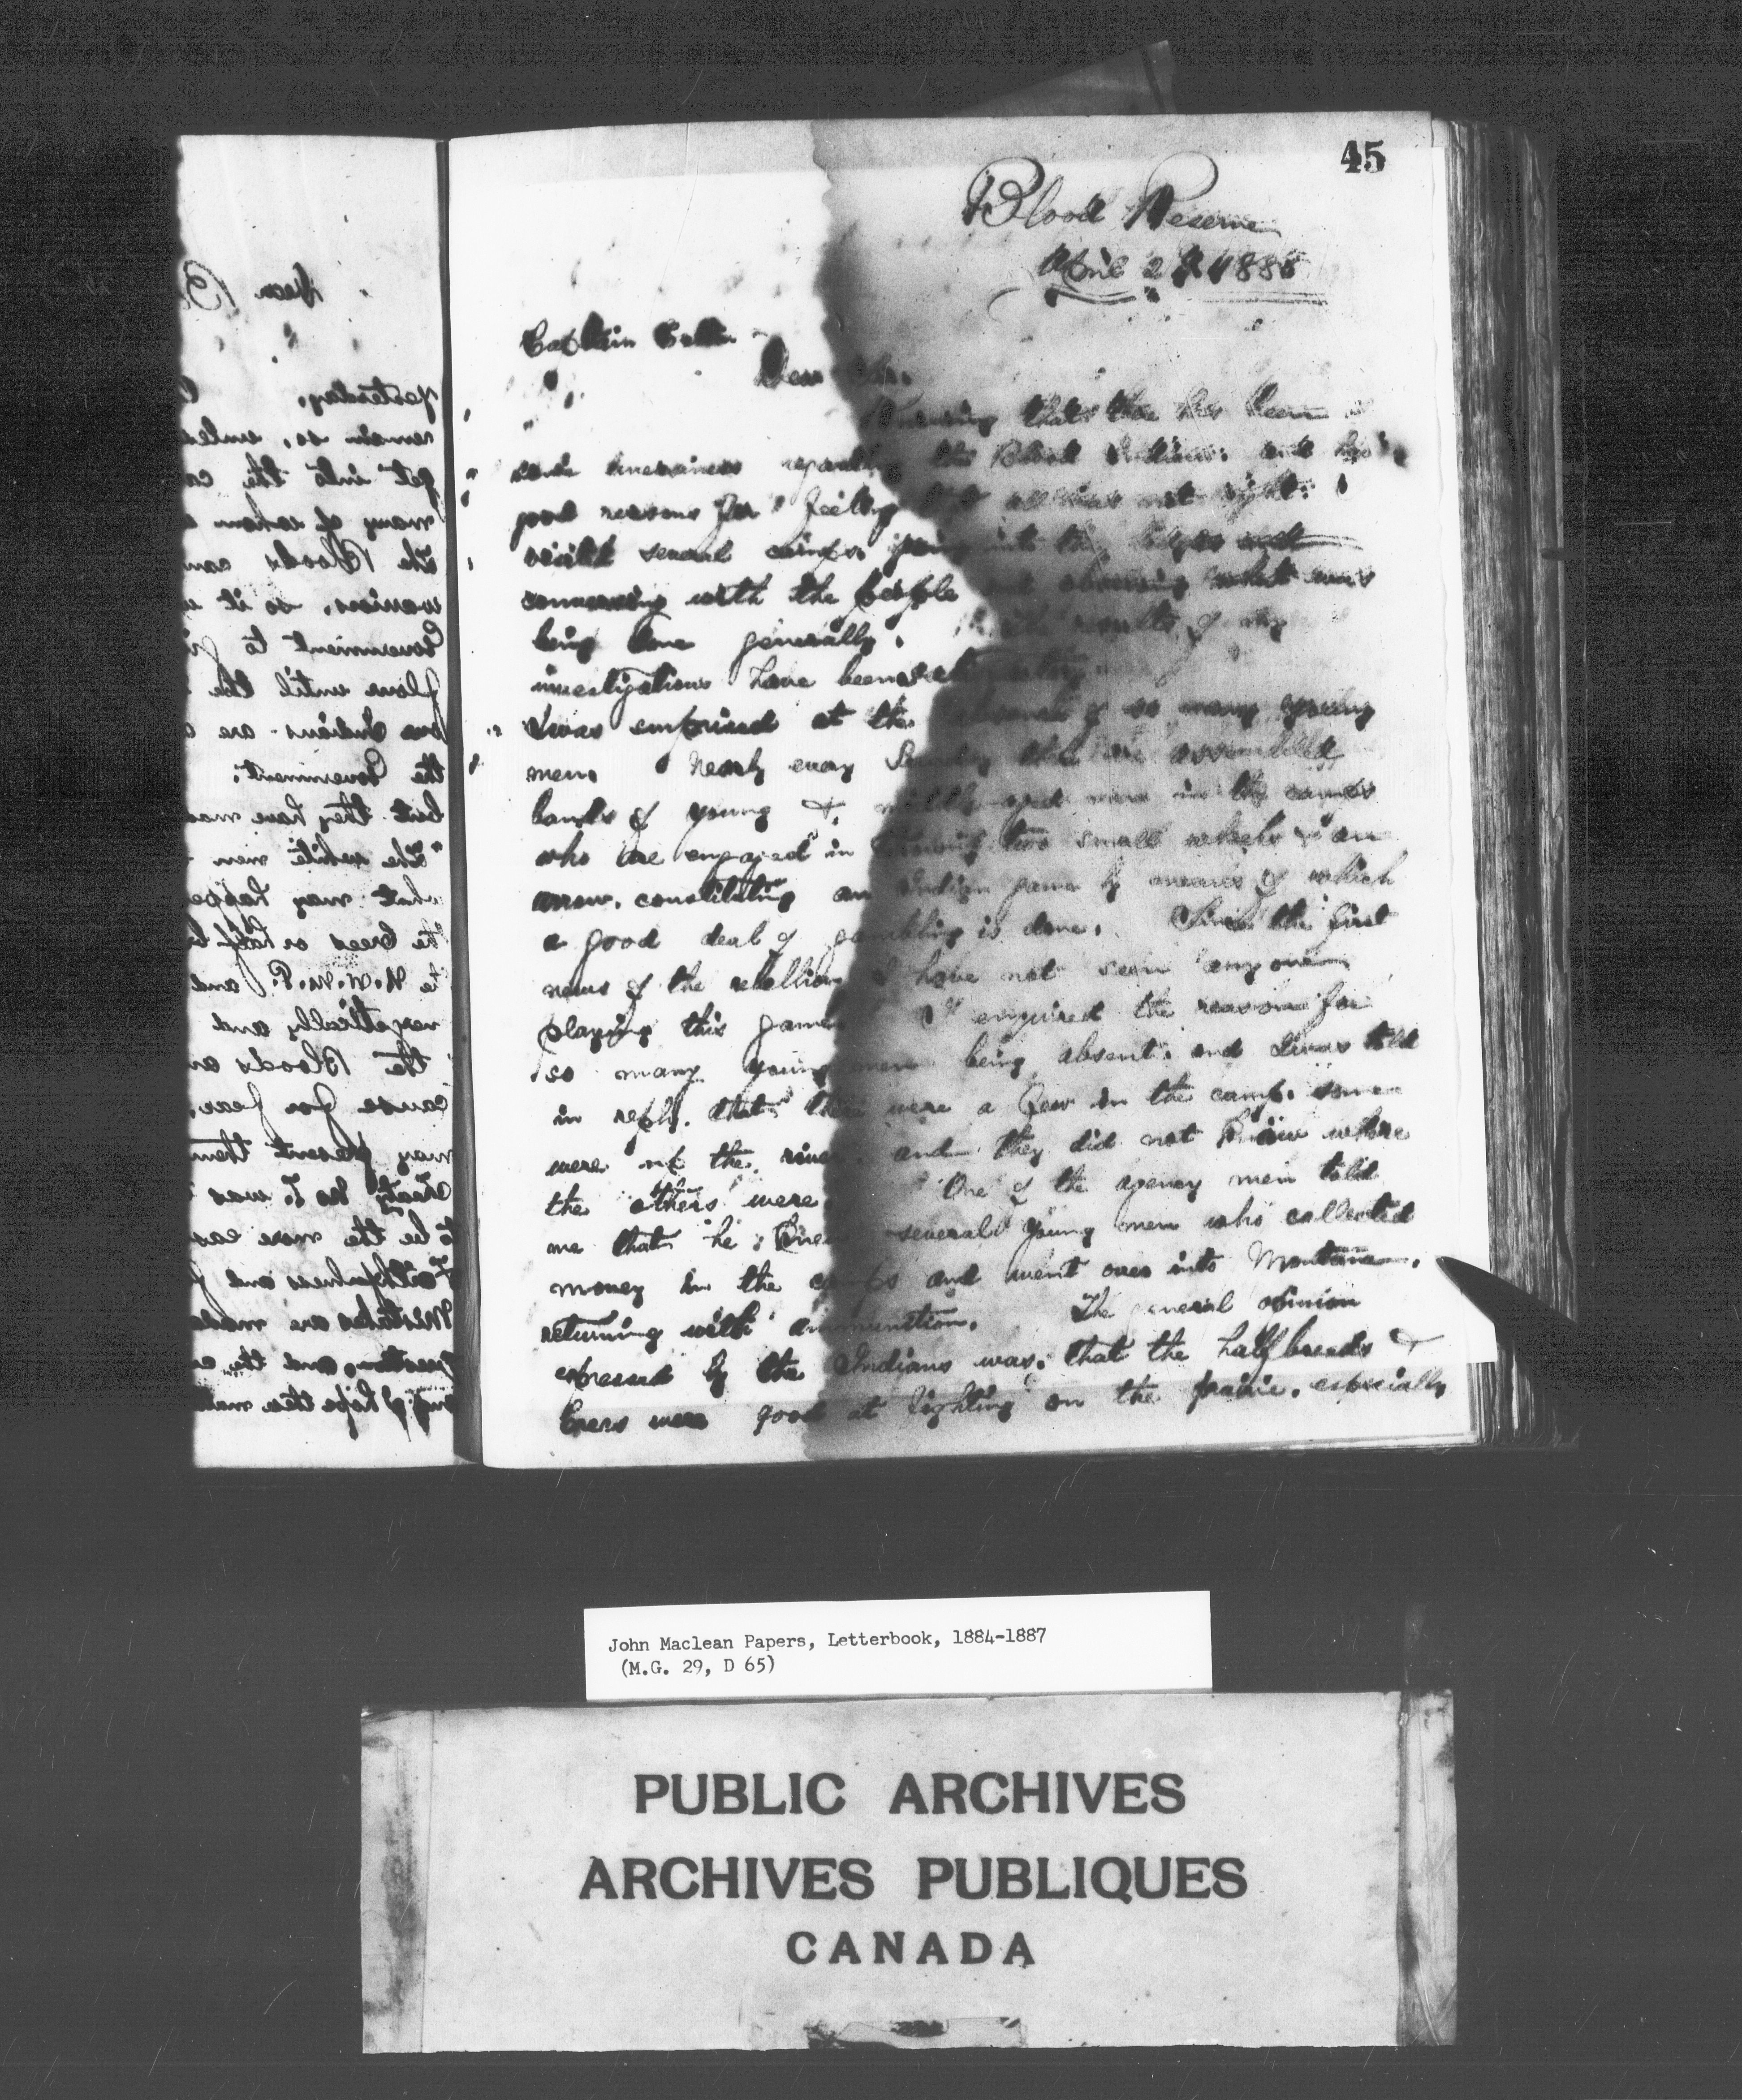 45
Blood Reserve
April 2 1885
Captain
Dear Sir,
Knowing that there has been
some uneasiness regarding the Blood Indians and
good reasons for feeling that all was not right, I
visited several camps, going into the lodges and
conversing with the people and observing what was
being done generally. The results of my
investigations have been
I was surprised at the absence of so many young
men. Nearly every there are assembled
bands of young & middle aged men in the camps
who are engaged in throwing two small wheels & an
arrow, constituting an Indian game by means of which
a good deal of gambling is done. Since the first
news of the rebellion I have not seen anyone
playing this game. I enquired the reason for
so many young men being absent, and I was told
in reply, that there were a few in the camp, some
were up the river and they did not know where
the others were. One of the agency men told
me that he knew several young men who collected
money in the camps and went over into Montana,
returning with ammunition. The general opinion
expressed by the Indians was, that the halfbreeds &
Crees were good at fighting on the prairie, especially
yesterday,
remain so, unless
get into the
many of whom
the Bloods
warriors, so it
Government to
until the
Indians are
the Government.
but they have
"The white men
what may
the Crees or half
N.W.M.P. and
and
the Bloods
cause for fear,
may present them
was
to be the more
Faithfulness and
Mistakes are made
and the
I hope the
John Maclean Papers, Letterbook, 1884-1887
(M.G. 29, D 65)
PUBLIC ARCHIVES
ARCHIVES PUBLIQUES
CANADA